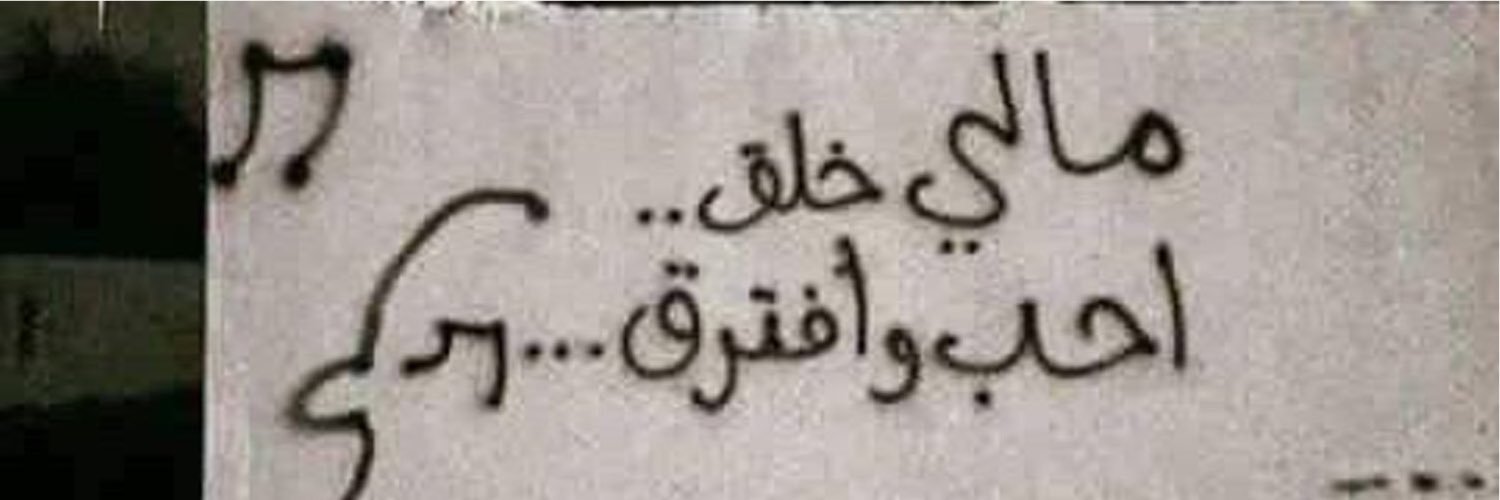 مالي خلق..
احب وأفترق...